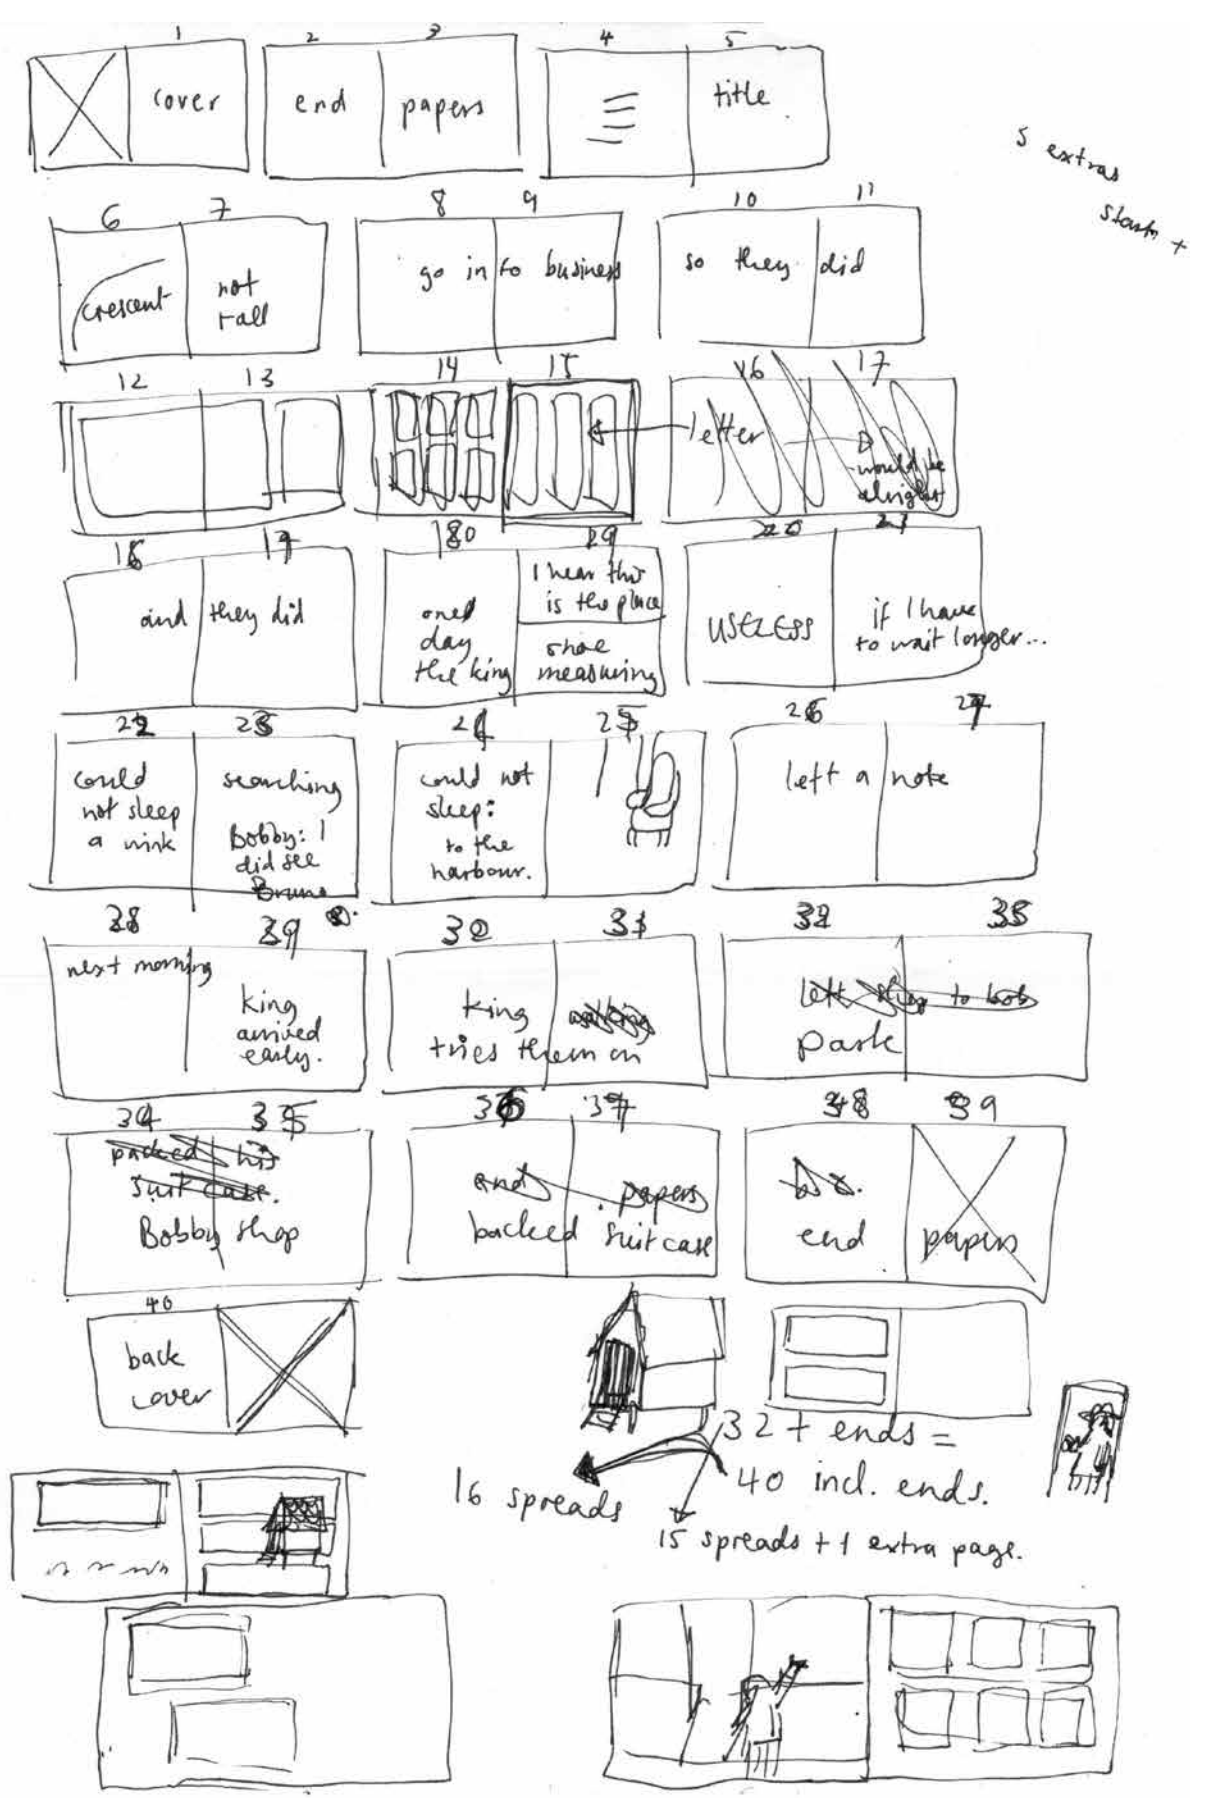 1
2 3
4 5
cover
end papers
title
5 extras
6 7
8 9
10 11
crescent
not
tall
go in to business
so they did
12 13
14 15
16 17
letter
would be
alright
and they did
one
day
the king
I hear this
is the place
shoe
measuring
USELESS
if I have
to wait longer...
22 23
could
not sleep
a wink
searching
Bobby: I
did see
Bruno
could not
sleep:
to the
harbour.
left a note
next morning
king
arrived
early.
king
tries them on
left to bob
park
packed his
suitcase.
Bobby shop
end papers
packed suitcase
end papers
40
back
cover
32 + ends =
40 incl. ends.
16 spreads
15 spreads + 1 extra page.